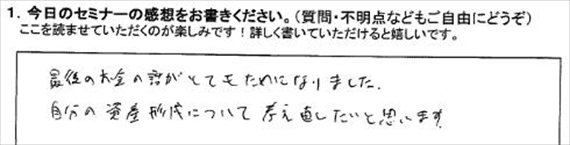 1. 今日のセミナーの感想をお書きください。(質問・不明点などもご自由にどうぞ)
ここを読ませていただくのが楽しみです！詳しく書いていただけると嬉しいです。
最後のお金の話がとてもためになりました.
自分の資産形成について考え直したいと思います